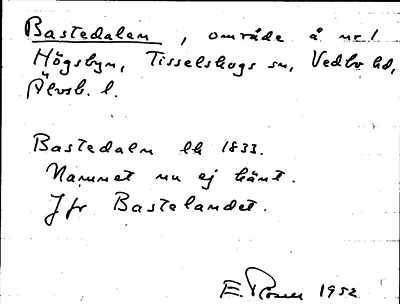 Bastedalen, område å nr 1
Högsbyn, Tisselskogs sn, Vedbo hd,
Älvsb. l.
Bastedaln lk 1833.
Namnet nu ej känt.
Jfr Bastelandet.
E. Rosen 1952